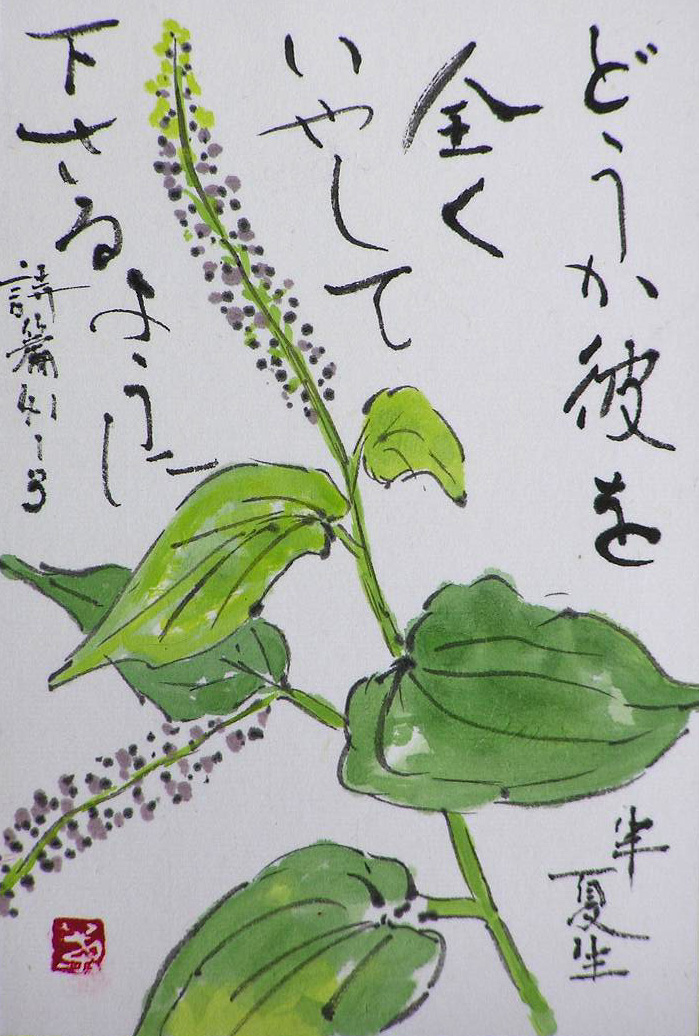 どうか彼を
全く
いやして
下さる
ように
詩篇41-3
半夏生